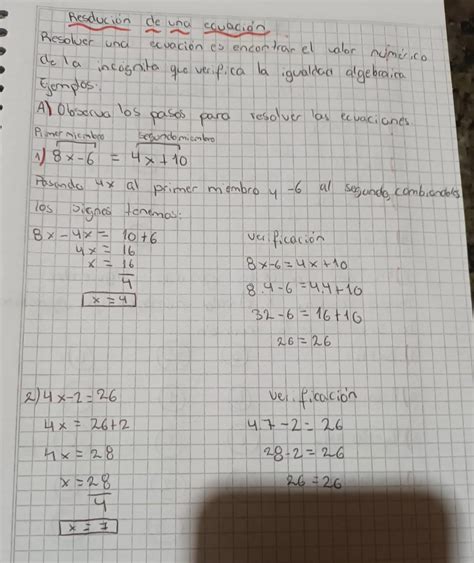 Resolución de una ecuación
Resolver una ecuación es encontrar el valor númerico
de la incognita que verifica la igualdad algebraica
Ejemplos:
A) Observa los pasos para resolver las ecuaciones.
Primer miembro segundo miembro
1) 8x-6 = 4x+10
Pasando 4x al primer miembro y -6 al segundo, cambiandoles
los signos tenemos:
8x-4x= 10+6
4x = 16
x = 16
4
x=4
verificación
8x-6=4x+10
8.4-6=4.4+10
32-6=16+10
26=26
2) 4x-2=26
4x= 26+2
4x=28
x=28
4
x=7
verificación
4.7-2=26
28-2=26
26=26